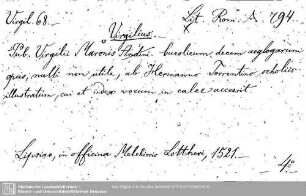 Virgil. 68.
Lit. Rom. A. 794.
Virgilius.
Pub. Virgilii Maronis bucolicum decem aeglogarum
opus, nulli non utile, ab Hermanno Torrentino scholiis
illustratum, cui et index vocum in calce accessit.
Lipsiae, in officina Melchioris Lottheri, 1521.
4°
Sächsische Landesbibliothek -
Staats- und Universitätsbibliothek Dresden